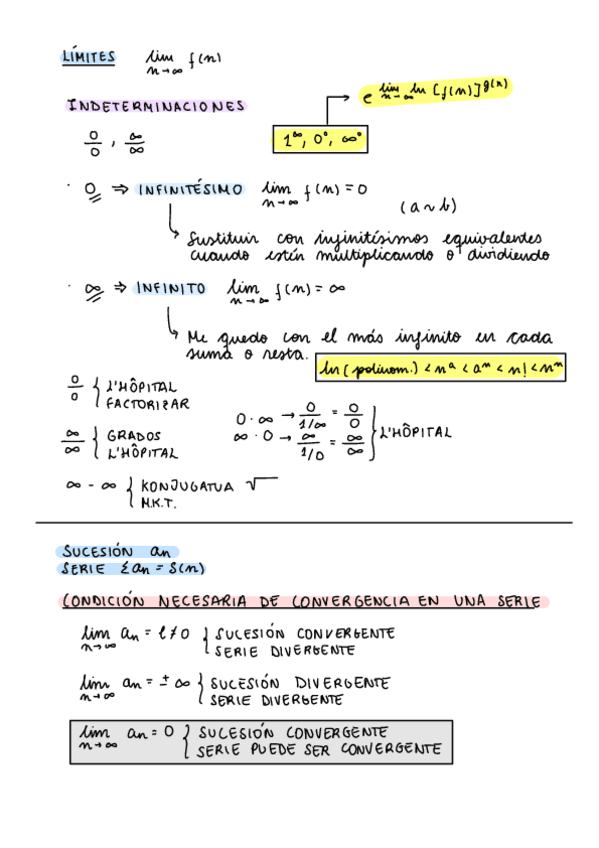 LÍMITES lim n→∞ f(n)
e^(lim n→∞ ln [f(n)]^g(n))
INDETERMINACIONES
0/0 , ∞/∞ 1^∞, 0°, ∞°
· 0 ⇒ INFINITÉSIMO lim n→∞ f(n) = 0
(a ~ b)
Sustituir con infinitésimos equivalentes
cuando estén multiplicando o dividiendo
· ∞ ⇒ INFINITO lim n→∞ f(n) = ∞
Me quedo con el más infinito en cada
suma o resta.
ln(polinom.) < n^a < a^n < n! < n^n
0/0 { L'HÔPITAL
FACTORIZAR
∞/∞ { GRADOS
L'HÔPITAL
0 · ∞ → 0/(1/∞) = 0/0
∞ · 0 → ∞/(1/0) = ∞/∞
} L'HÔPITAL
∞ - ∞ { KONJUGATUA √
M.K.T.
SUCESIÓN an
SERIE Σan = S(n)
CONDICIÓN NECESARIA DE CONVERGENCIA EN UNA SERIE
lim n→∞ an = l ≠ 0 { SUCESIÓN CONVERGENTE
SERIE DIVERGENTE
lim n→∞ an = ± ∞ { SUCESIÓN DIVERGENTE
SERIE DIVERGENTE
lim n→∞ an = 0 { SUCESIÓN CONVERGENTE
SERIE PUEDE SER CONVERGENTE